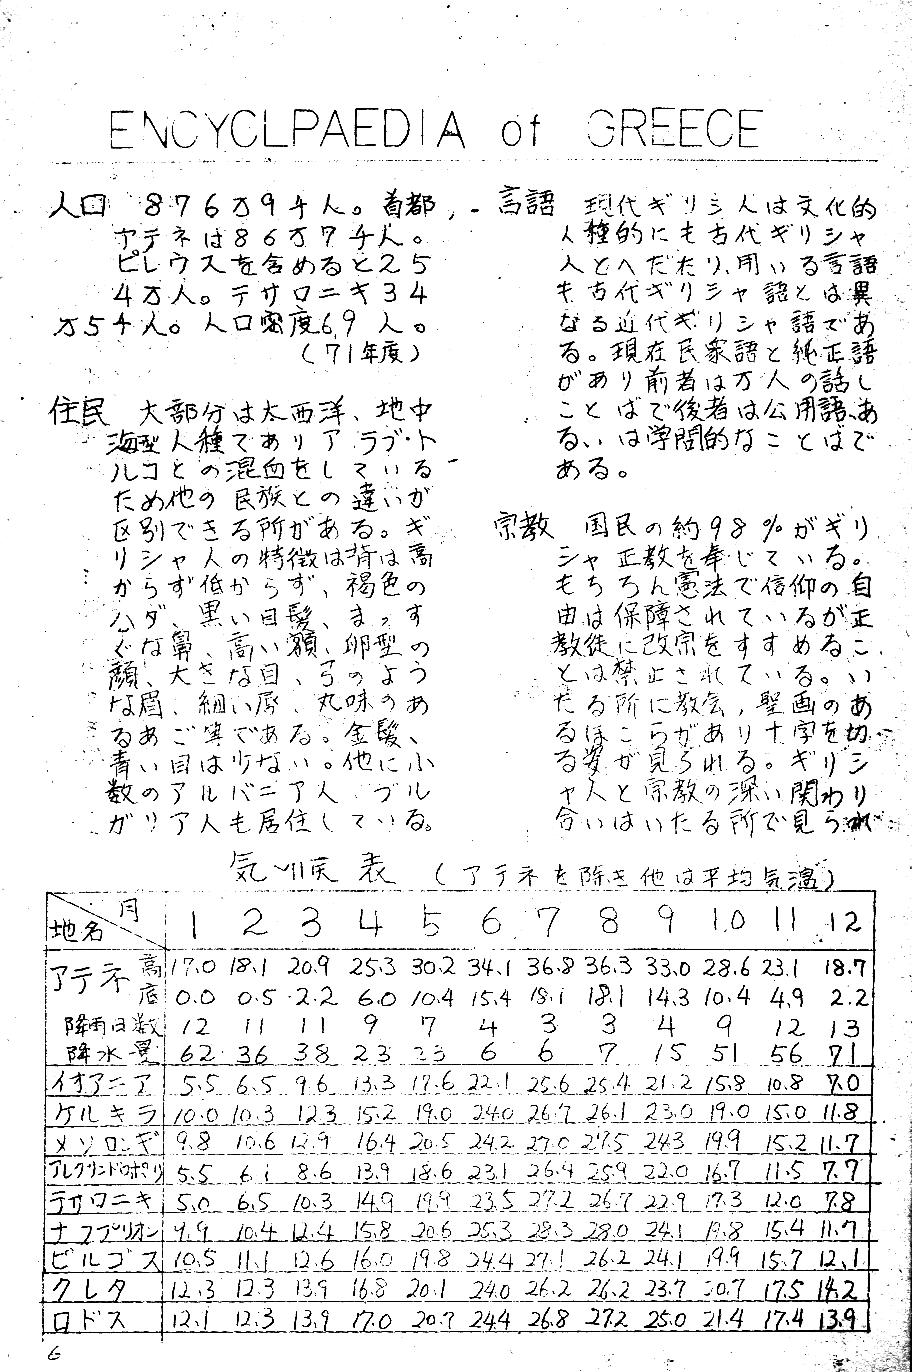 ENCYCLPAEDIA of GREECE
人口 876万9千人。首都、
アテネは86万7千人。
ピレウスを含めると25
4万人。テサロニキ34
万5千人。人口密度69人。
(71年度)
住民 大部分は太西洋、地中
海型人種でありアラブ・ト
ルコとの混血をしている
ため他の民族との違いが
区別できる所がある。ギ
リシャ人の特徴は背は高
からず低からず、褐色の
ハダ、黒い目髪、まっす
ぐな鼻、高い額、卵型の
顔、大きな目、弓のよう
な眉、細い唇、丸味のあ
るあご等である。金髪、
青い目は少ない。他に小
数のアルバニア人、ブル
ガリア人も居住している。
言語 現代ギリシ人は文化的
人種的にも古代ギリシャ
人とへだたり、用いる言語
も古代ギリシャ語とは異
なる近代ギリシャ語であ
る。現在民衆語と純正語
があり前者は万人の話し
ことばで後者は公用語、あ
るいは学問的なことばで
ある。
宗教 国民の約98%がギリ
シャ正教を奉じている。
もちろん憲法で信仰の自
由は保障されているが正
教徒に改宗をすすめるこ
とは禁止されている。い
たる所に教会,聖画のあ
るほこらがあり十字を切
る姿が見られる。ギリシ
ャ人と宗教の深い関わり
合いはいたる所で見られ
気順表 (アテネを除き他は平均気温)
地名 月 1 2 3 4 5 6 7 8 9 10 11 12
アテネ 高 17.0 18.1 20.9 25.3 30.2 34.1 36.8 36.3 33.0 28.6 23.1 18.7
底 0.0 0.5 2.2 6.0 10.4 15.4 18.1 18.1 14.3 10.4 4.9 2.2
降雨日数 12 11 11 9 7 4 3 3 4 9 12 13
降水量 62 36 38 23 23 6 6 7 15 51 56 71
イオアニア 5.5 6.5 9.6 13.3 17.6 22.1 25.6 25.4 21.2 15.8 10.8 7.0
ケルキラ 10.0 10.3 12.3 15.2 19.0 24.0 26.7 26.1 23.0 19.0 15.0 11.8
メソロンギ 9.8 10.6 12.9 16.4 20.5 24.2 27.0 27.5 24.3 19.9 15.2 11.7
アレクサンドロポリ 5.5 6.1 8.6 13.9 18.6 23.1 26.4 25.9 22.0 16.7 11.5 7.7
テサロニキ 5.0 6.5 10.3 14.9 19.9 23.5 27.2 26.7 22.9 17.3 12.0 7.8
ナフプリオン 9.9 10.4 12.4 15.8 20.6 25.3 28.3 28.0 24.1 19.8 15.4 11.7
ピルゴス 10.5 11.1 12.6 16.0 19.8 24.4 27.1 26.2 24.1 19.9 15.7 12.1
クレタ 12.3 12.3 13.9 16.8 20.1 24.0 26.2 26.2 23.7 20.7 17.5 14.2
ロドス 12.1 12.3 13.9 17.0 20.7 24.4 26.8 27.2 25.0 21.4 17.4 13.9
6